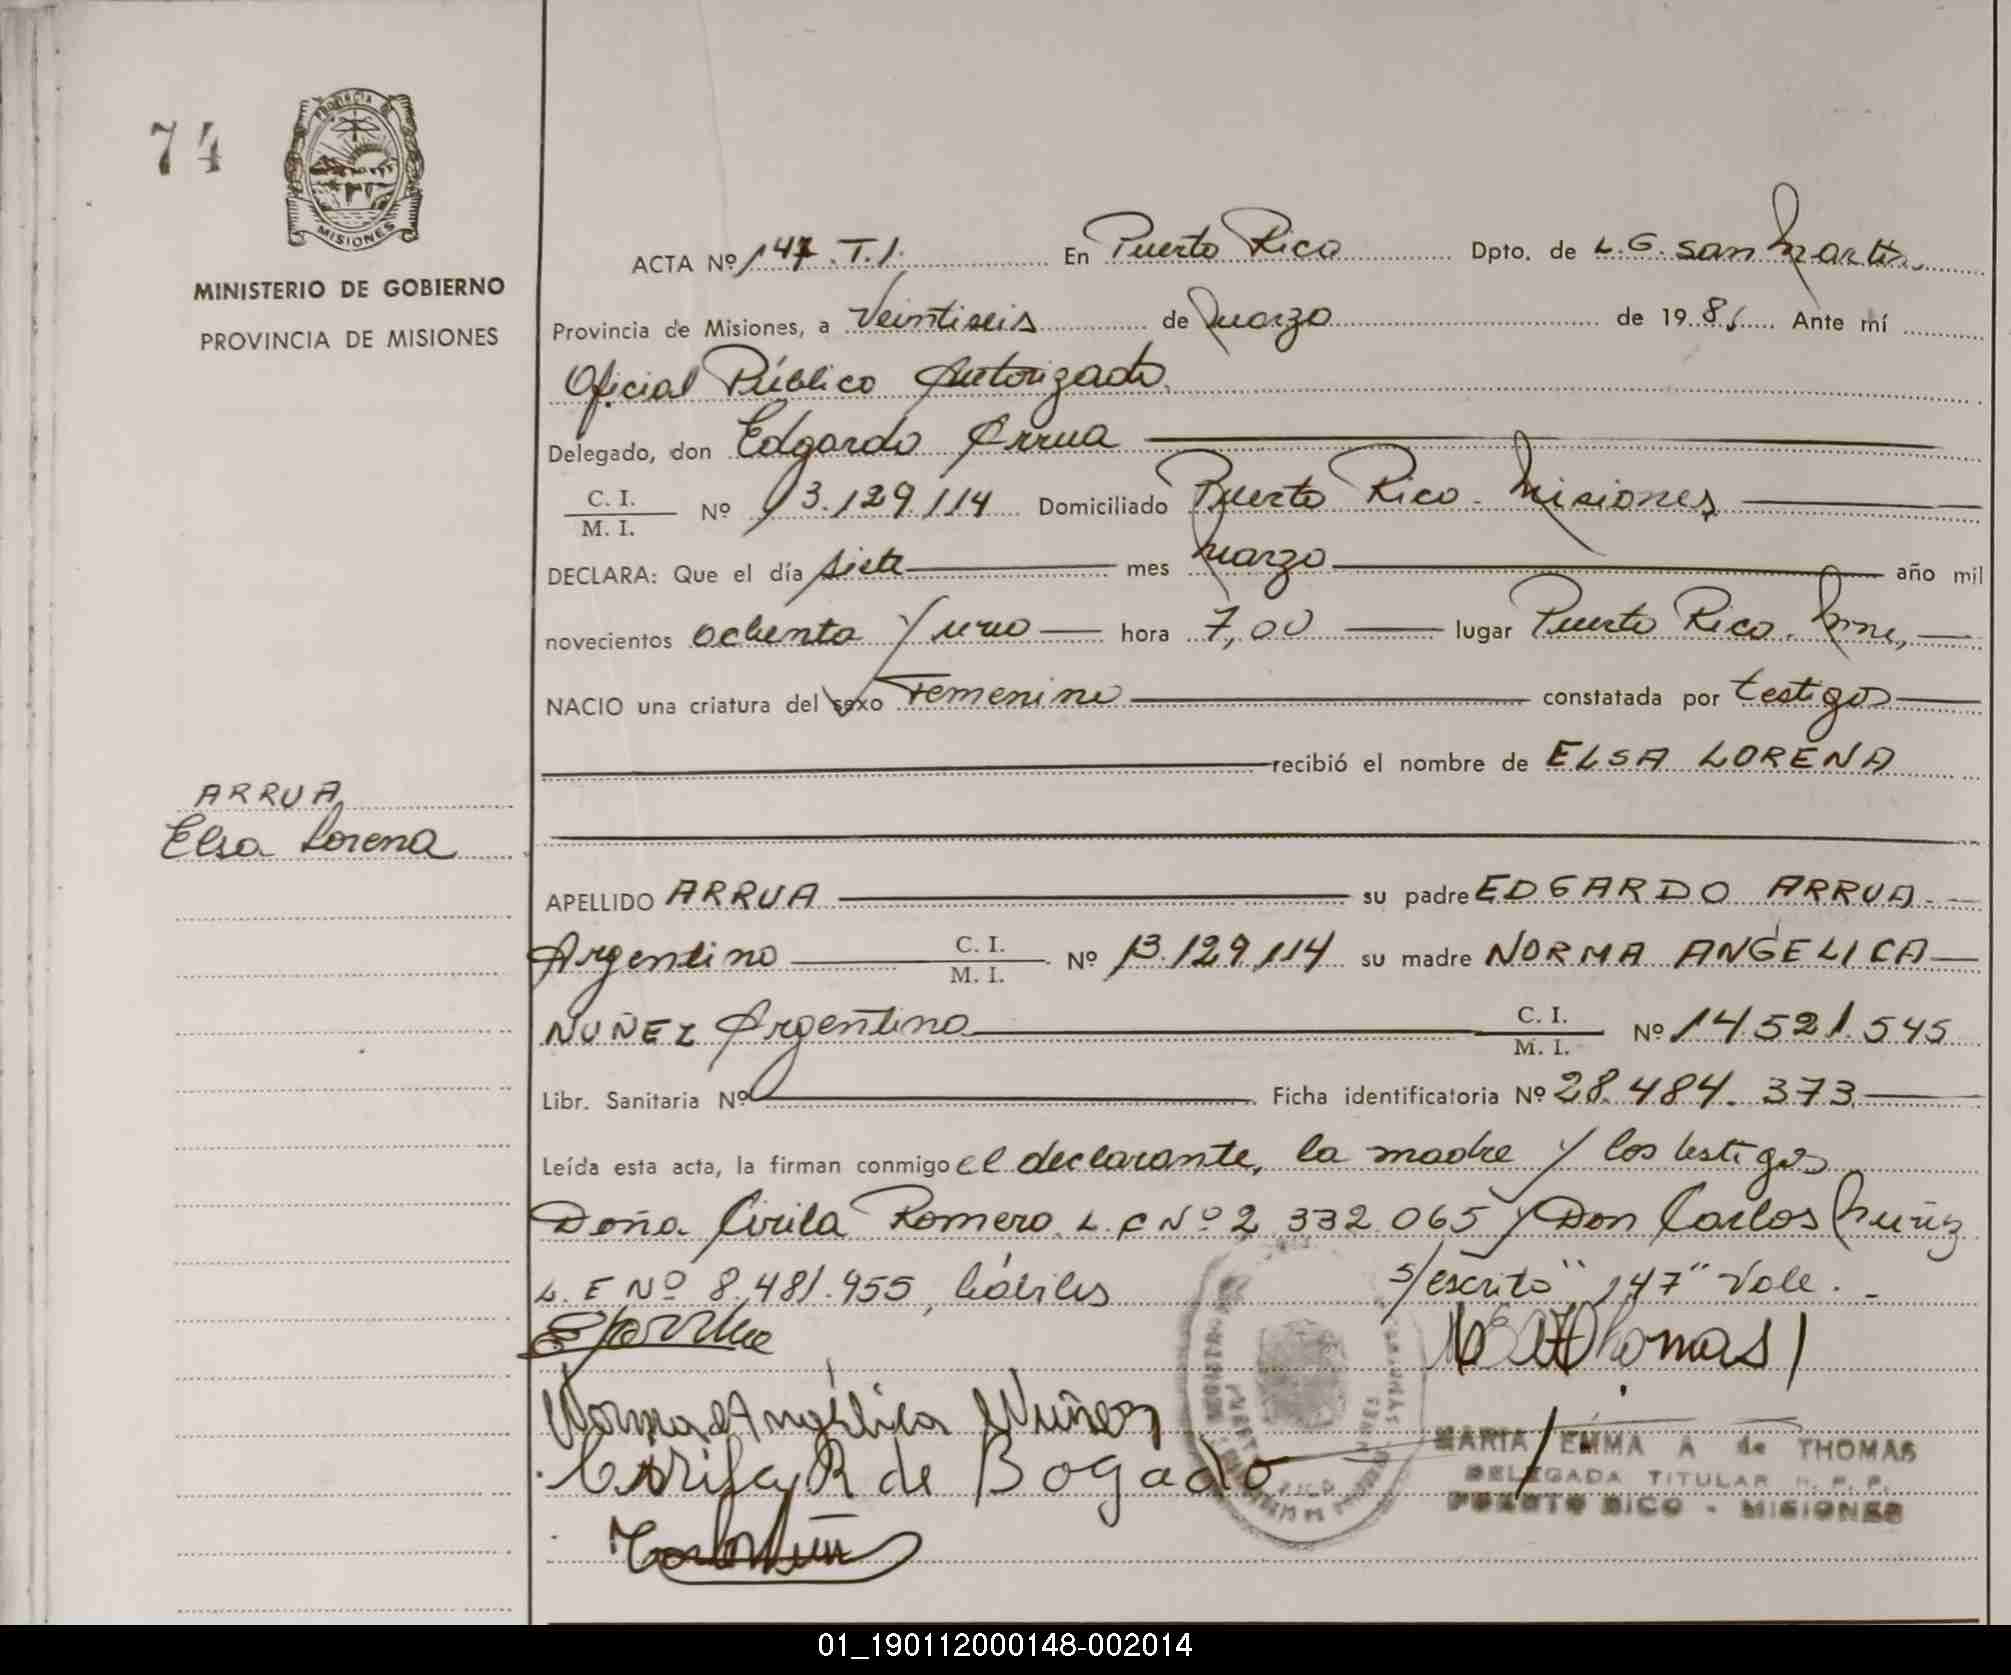 74
PROVINCIA DE
MISIONES
MINISTERIO DE GOBIERNO
PROVINCIA DE MISIONES
ACTA Nº 147 . T.1. En Puerto Rico Dpto. de L.G. San Martín
Provincia de Misiones, a Veintiseis de Marzo de 1981 Ante mí
Oficial Público Autorizado
Delegado, don Edgardo Arrua
C. I.
M. I. Nº 13.129.114 Domiciliado Puerto Rico - Misiones
DECLARA: Que el día siete mes Marzo año mil
novecientos ochenta y uno hora 7,00 lugar Puerto Rico. Mnes,
NACIO una criatura del sexo Femenino constatada por testigos
recibió el nombre de ELSA LORENA
ARRUA
Elsa Lorena
APELLIDO ARRUA su padre EDGARDO ARRUA
Argentino C. I.
M. I. Nº 13.129.114 su madre NORMA ANGÉLICA
NUÑEZ Argentina C. I.
M. I. Nº 14.521.545
Libr. Sanitaria Nº Ficha identificatoria Nº 28.484.373
Leída esta acta, la firman conmigo el declarante, la madre y los testigos
Doña Cirila Romero L.C Nº 2.332.065 y Don Carlos Nuñez
L.E Nº 8.481.955, hábiles S/escrito "147" Vale. -
Norma Angélica Nuñez Thomas
Cirila R de Bogado
MARIA EMMA A de THOMAS
DELEGADA TITULAR R. P. P.
PUERTO RICO - MISIONES
01_190112000148-002014